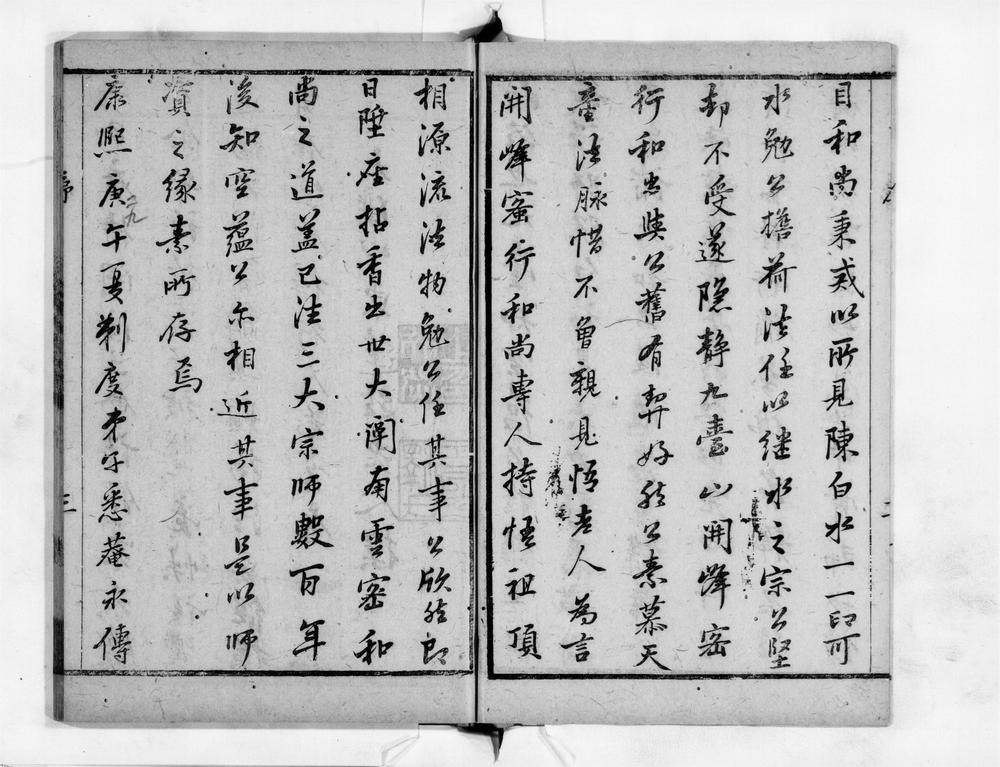 目和尚秉戒以所見陳白水一一印可
水勉公擔荷法任以继水之宗公堅
却不受遂隐靜九臺山開峰宻
行和尚與公舊有契好然公素慕天
童法脉惜不曾親見悟老人為言
開峰蜜行和尚專人持悟祖頂
相源流法物勉公任其事公欣然即
日陞座拈香出世大闡南雲宻和
尚之道盖已法三大宗師數百年
後知空蕴公尔相近其事是以師
資之缘素所存焉
康熙庚午夏剃度弟子悉菴永傳
二九
序
三
二